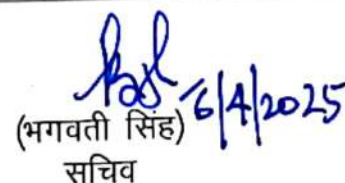 6/4/2025
(भगवती सिंह)
सचिव